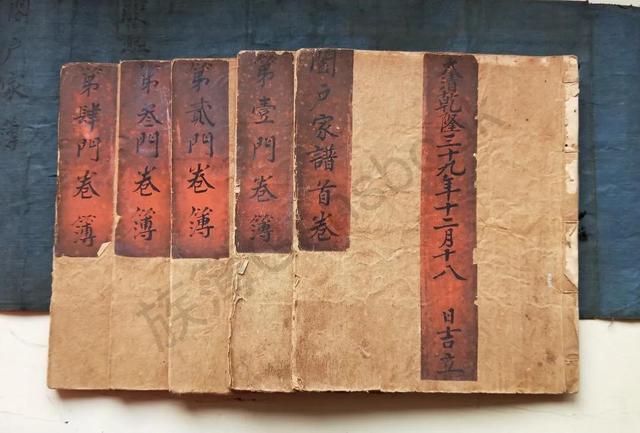 大清乾隆三十九年十二月十八 日吉立
闔戶家譜首卷
第壹門卷簿
第貳門卷簿
第叁門卷簿
第肆門卷簿
闔戶家簿